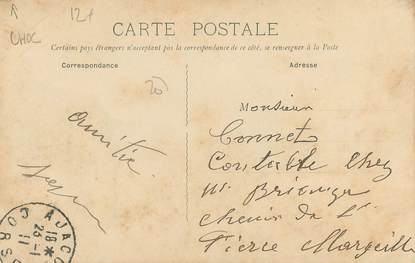 12 f
CHOC
CARTE POSTALE
Certains pays étrangers n'acceptant pas la correspondance de ce côté, se renseigner à la Poste
Correspondance
Adresse
20
Amitié
Monsieur
Connet
Comptable Chez
Mr
Chemin de St
Pierre Marseille
AJACCIO
18
23-1
11
CORSE